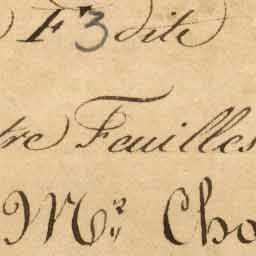 F 3 dite
tre Feuilles
Mr. Cho